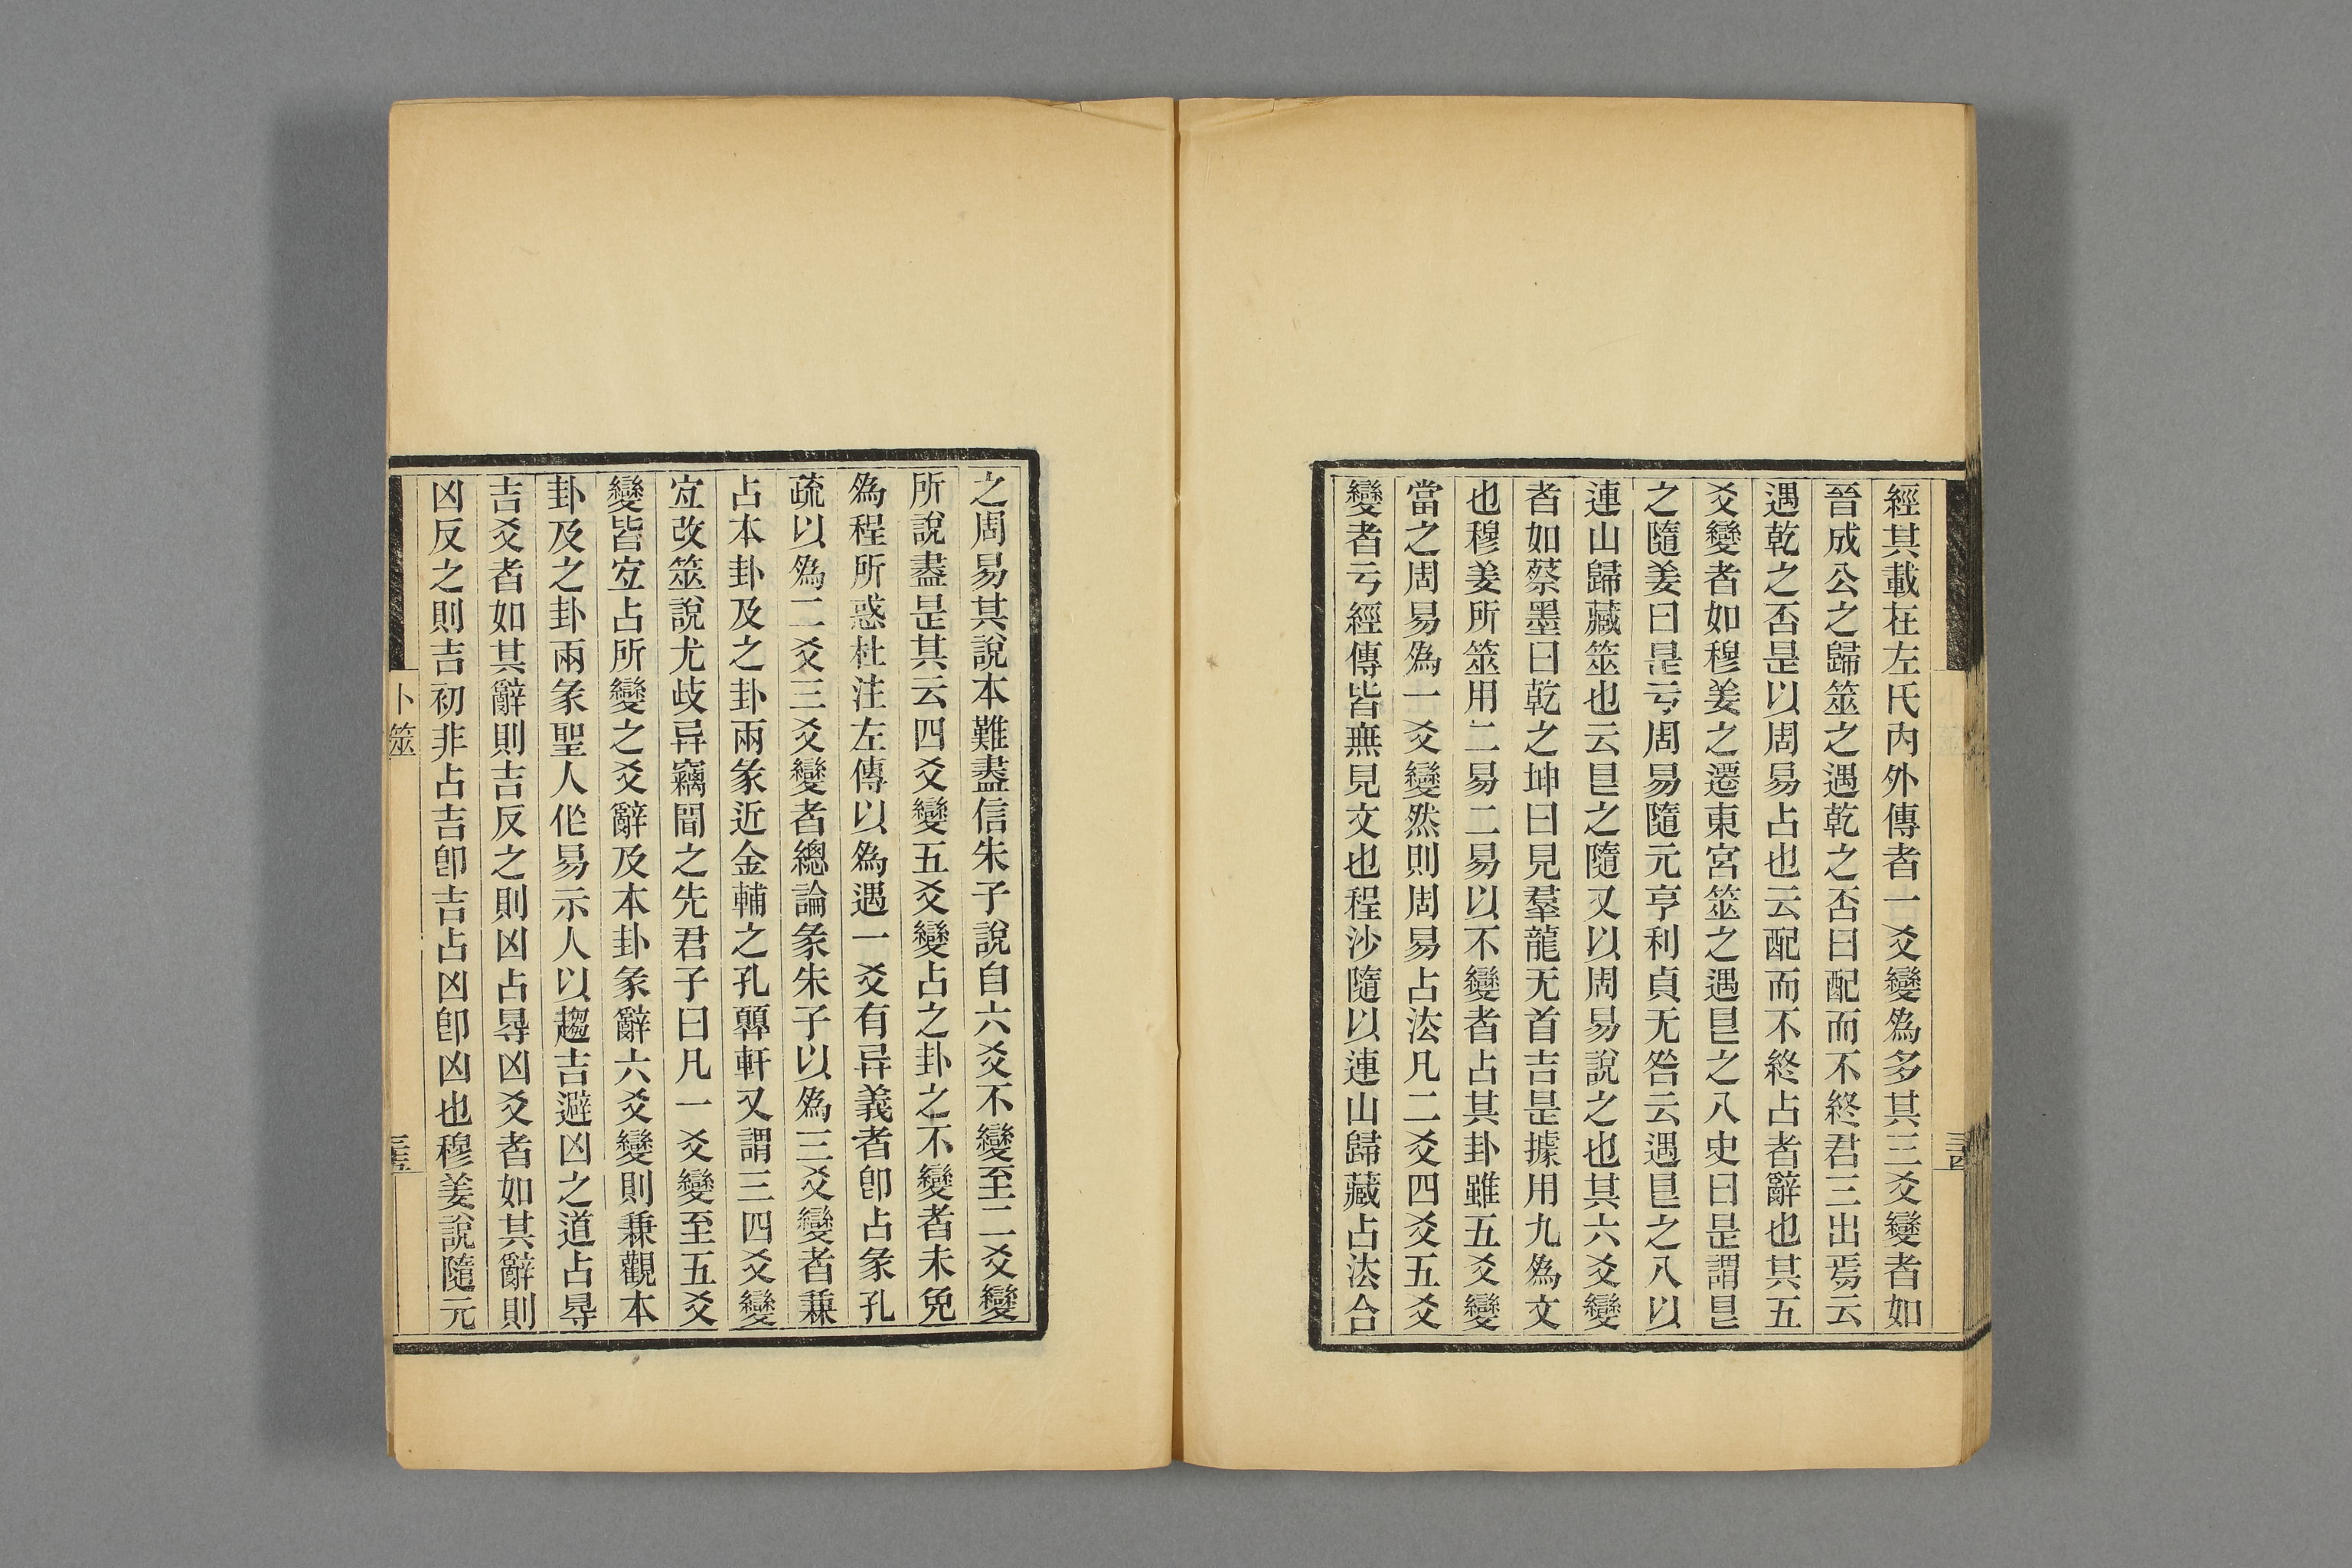 經其載在左氏內外傳者一爻變爲多其三爻變者如
晉成公之歸筮之遇乾之否曰配而不終君三出焉云
遇乾之否是以周易占也云配而不終占者辭也其五
爻變者如穆姜之遷東宮筮之遇㫔之八史曰是謂㫔
之隨姜曰是亏周易隨元亨利貞无咎云遇㫔之八以
連山歸藏筮也云㫔之隨又以周易說之也其六爻變
者如蔡墨曰乾之坤曰見羣龍无首吉是據用九爲文
也穆姜所筮用二易二易以不變者占其卦雖五爻變
當之周易爲一爻變然則周易占法凡二爻四爻五爻
變者亏經傳皆無見文也程沙隨以連山歸藏占法合
三四
之周易其說本難盡信朱子說自六爻不變至二爻變
所說盡是其云四爻變五爻變占之卦之不變者未免
爲程所惑杜注左傳以爲遇一爻有异義者卽占彖孔
疏以爲二爻三爻變者總論彖朱子以爲三爻變者兼
占本卦及之卦兩彖近金輔之孔顨軒又謂三四爻變
宐改筮說尤歧异竊聞之先君子曰凡一爻變至五爻
變皆宐占所變之爻辭及本卦彖辭六爻變則兼觀本
卦及之卦兩彖聖人作易示人以趨吉避凶之道占㝵
吉爻者如其辭則吉反之則凶占㝵凶爻者如其辭則
凶反之則吉初非占吉卽吉占凶卽凶也穆姜說隨元
卜筮
三五